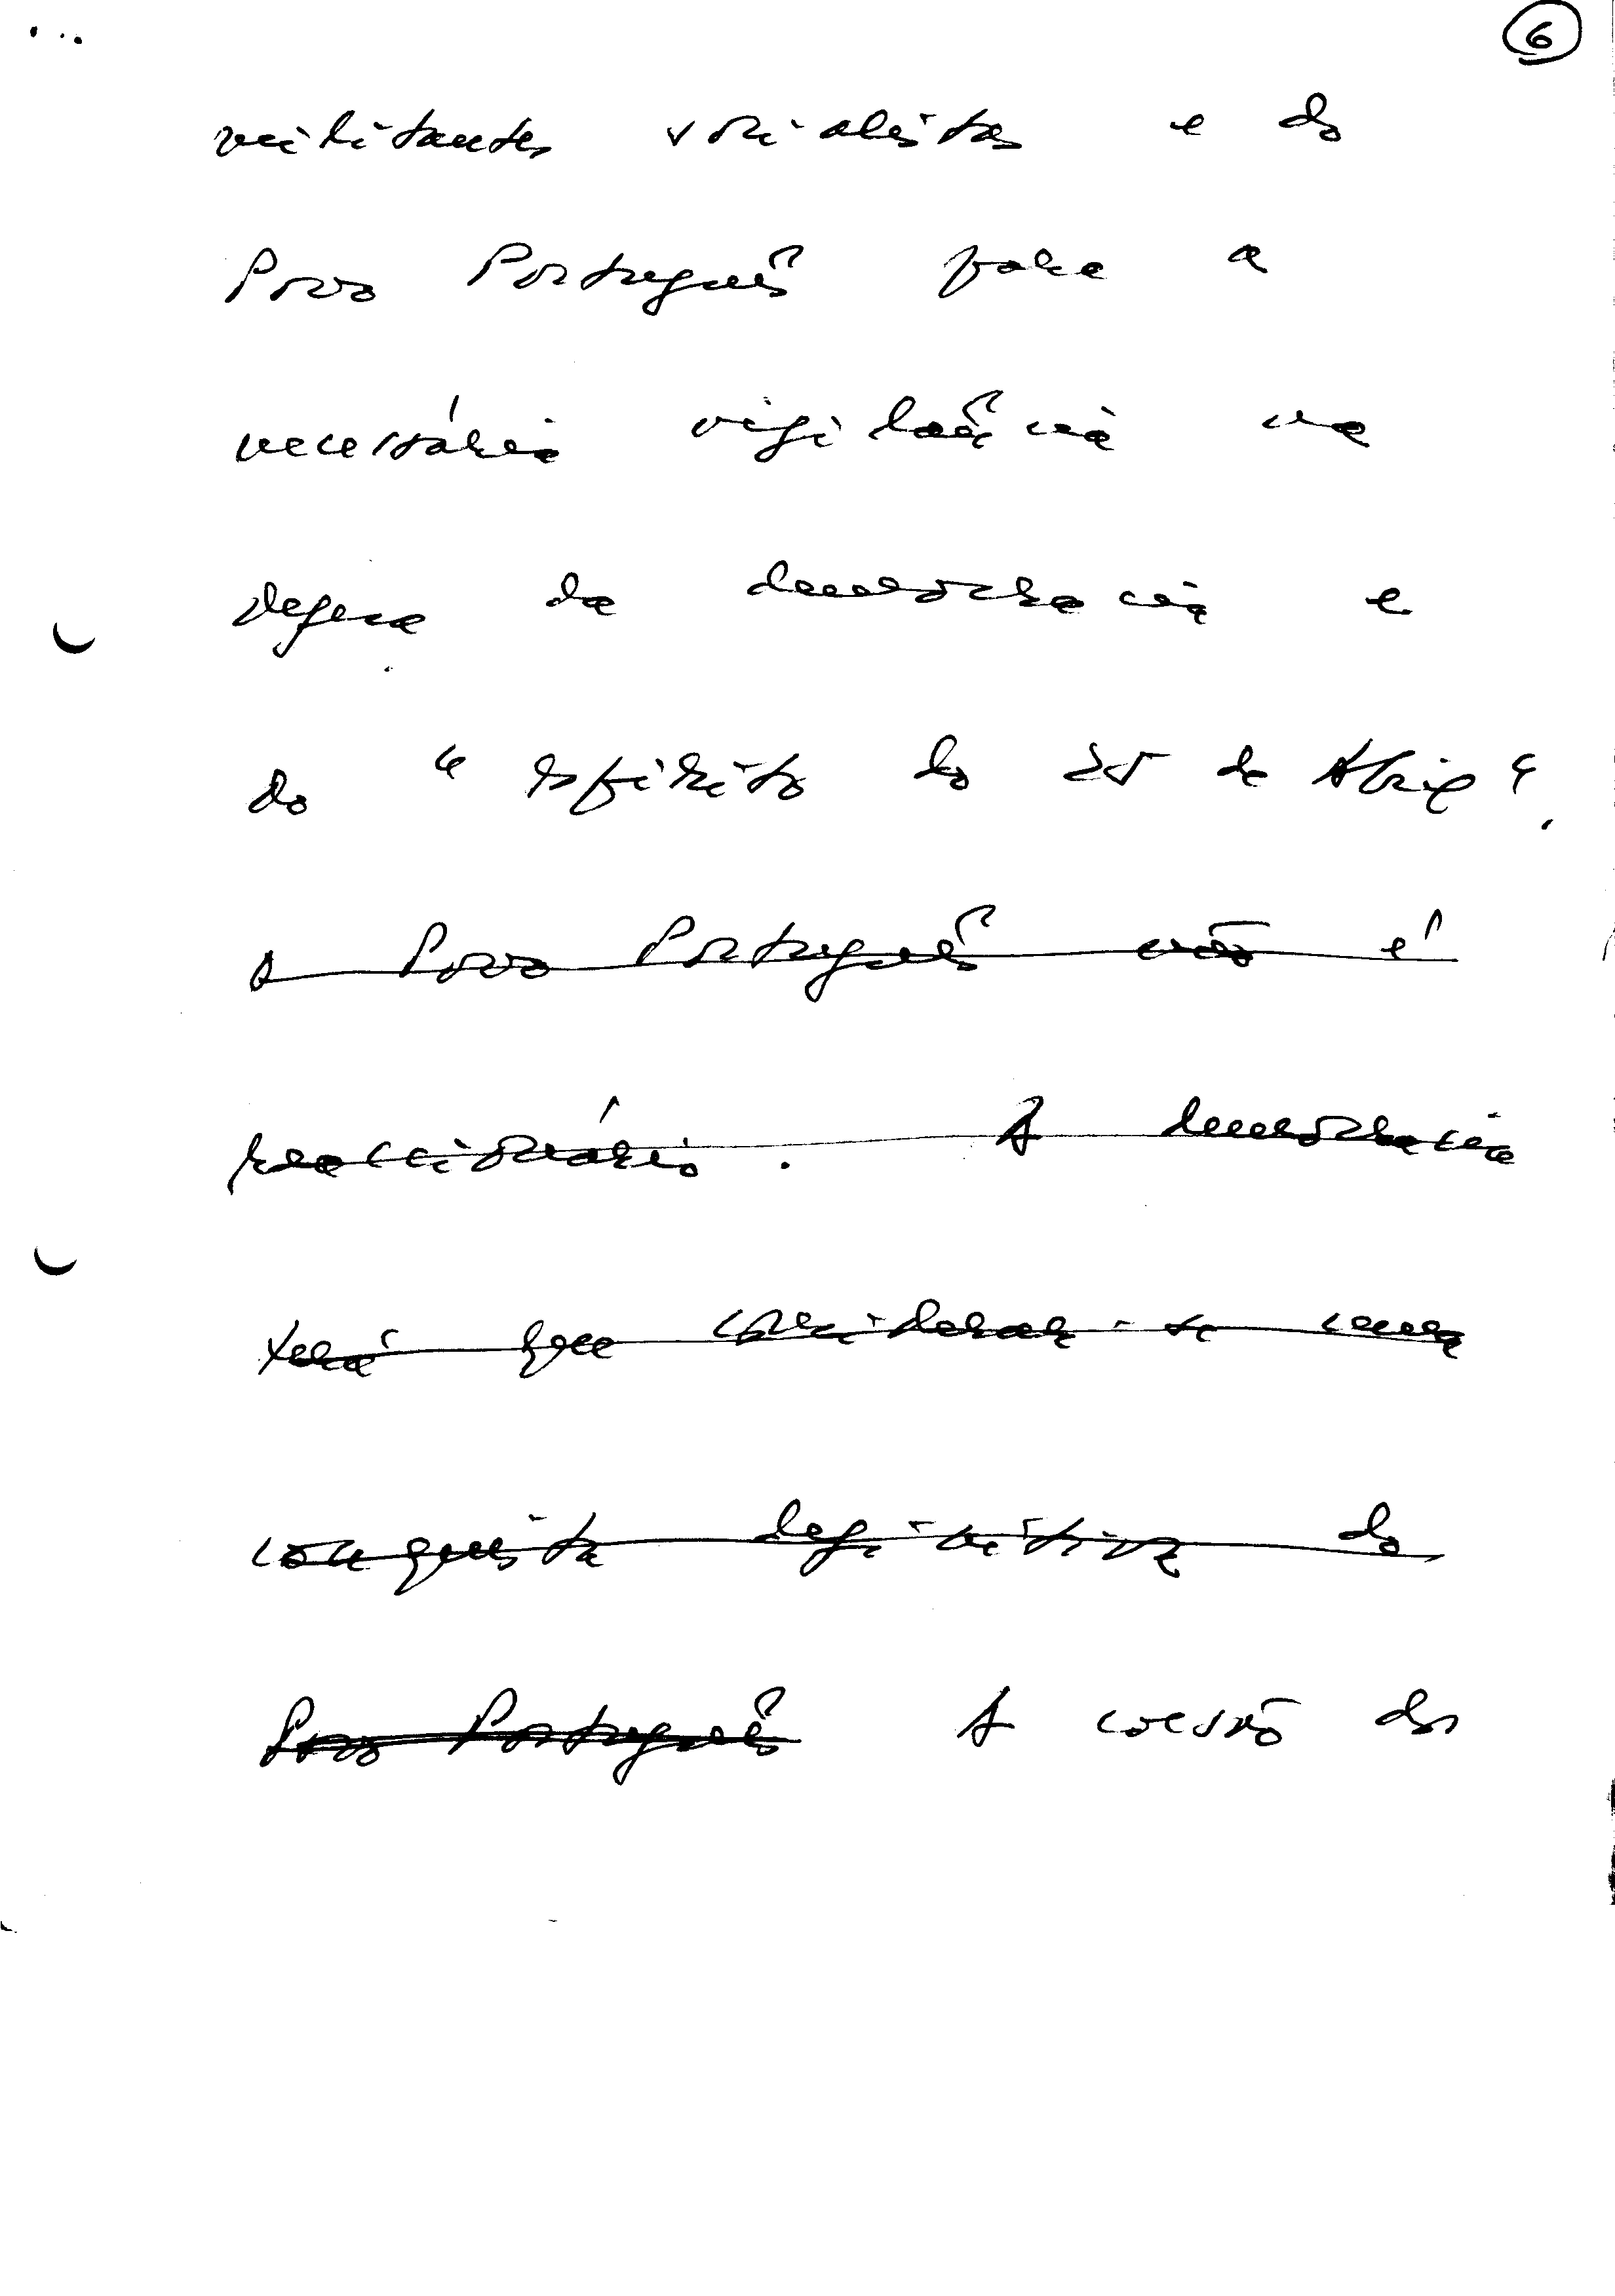 6
militantes socialistas e do
Povo Português para a
necessária vigilância na
defesa da democracia e
do "espírito do 25 de Abril".
O Povo Português não é
reaccionário. A democracia
terá que considerar-se uma
conquista definitiva do
Povo Português A coesão dos